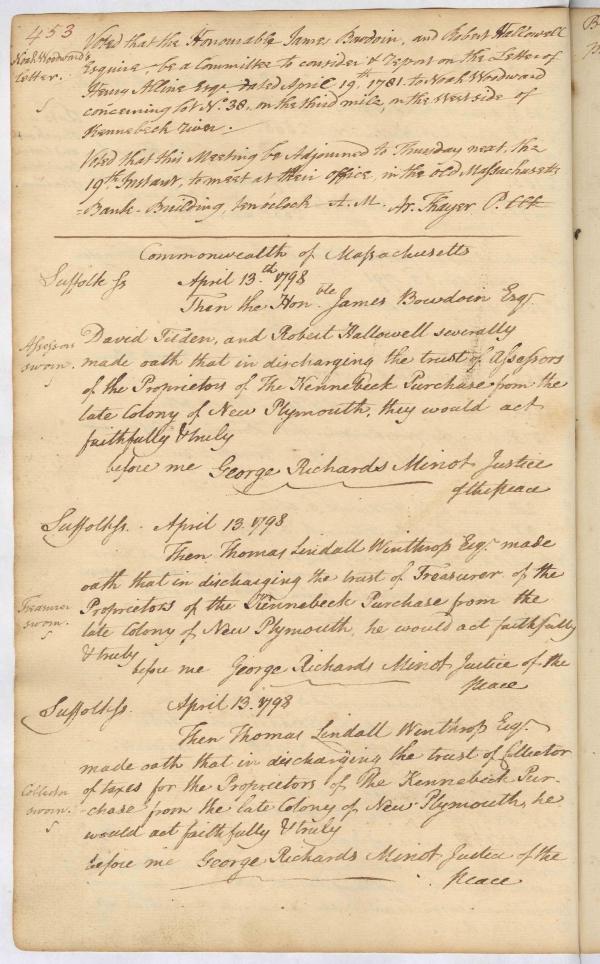 453
Noah Woodward's
Letter.
Voted that the Honourable James Bowdoin, and Robert Hallowell
Esquire, be a Committee to consider & report on the Letter of
Henry Alline Esqr. dated April 19th. 1781. to Noah Woodward
concerning Lot No. 38, on the third mile, on the West side of
Kennebeck River.
Voted that this Meeting be Adjourned to Thursday next, the
19th. Instant, to meet at their office, in the old Massachusetts
=Bank-Building, ten o'clock A. M. Ar. Thayer P. Clk
Commonwealth of Massachusetts
Suffolk ss April 13.th 1798
Then the Honble. James Bowdoin Esqr.
Assessors
sworn.
David Tilden, and Robert Hallowell severally
made oath that in discharging the trust of Assessors
of the Proprietors of The Kennebeck Purchase from the
late Colony of New Plymouth, they would act
faithfully & truly
before me George Richards Minot Justice
of the Peace
Suffolk ss. April 13. 1798
Then Thomas Lindall Winthrop Esqr. made
oath that in discharging the trust of Treasurer of the
Treasurer
sworn.
Proprietors of the Kennebeck Purchase from the
late Colony of New Plymouth, he would act faithfully
& truly
before me George Richards Minot Justice of the
Peace
Suffolk ss. April 13. 1798
Then Thomas Lindall Winthrop Esqr.
made oath that in discharging the trust of Collector
Collector
sworn.
of taxes for the Proprietors of The Kennebeck Pur-
-chase from the late Colony of New-Plymouth, he
would act faithfully & truly
before me George Richards Minot Justice of the
Peace